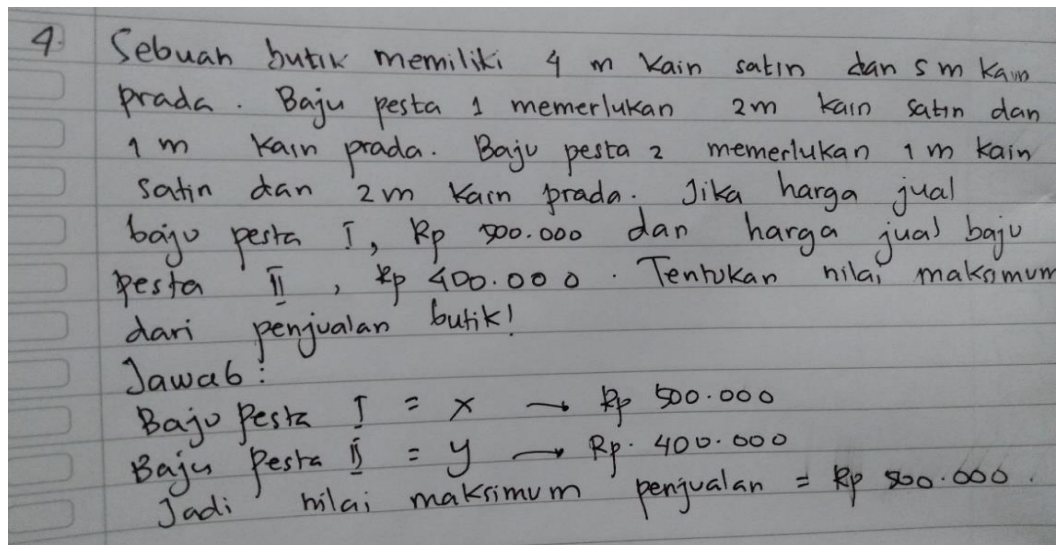 4. Sebuah butik memiliki 4 m kain satin dan 5 m kain
prada. Baju pesta 1 memerlukan 2m kain satin dan
1 m kain prada. Baju pesta 2 memerlukan 1 m kain
satin dan 2m kain prada. Jika harga jual
baju pesta I, Rp 500.000 dan harga jual baju
pesta II, Rp 400.000. Tentukan nilai maksimum
dari penjualan butik!
Jawab:
Baju Pesta I = x → Rp 500.000
Baju Pesta II = y → Rp. 400.000
Jadi nilai maksimum penjualan = Rp 800.000.